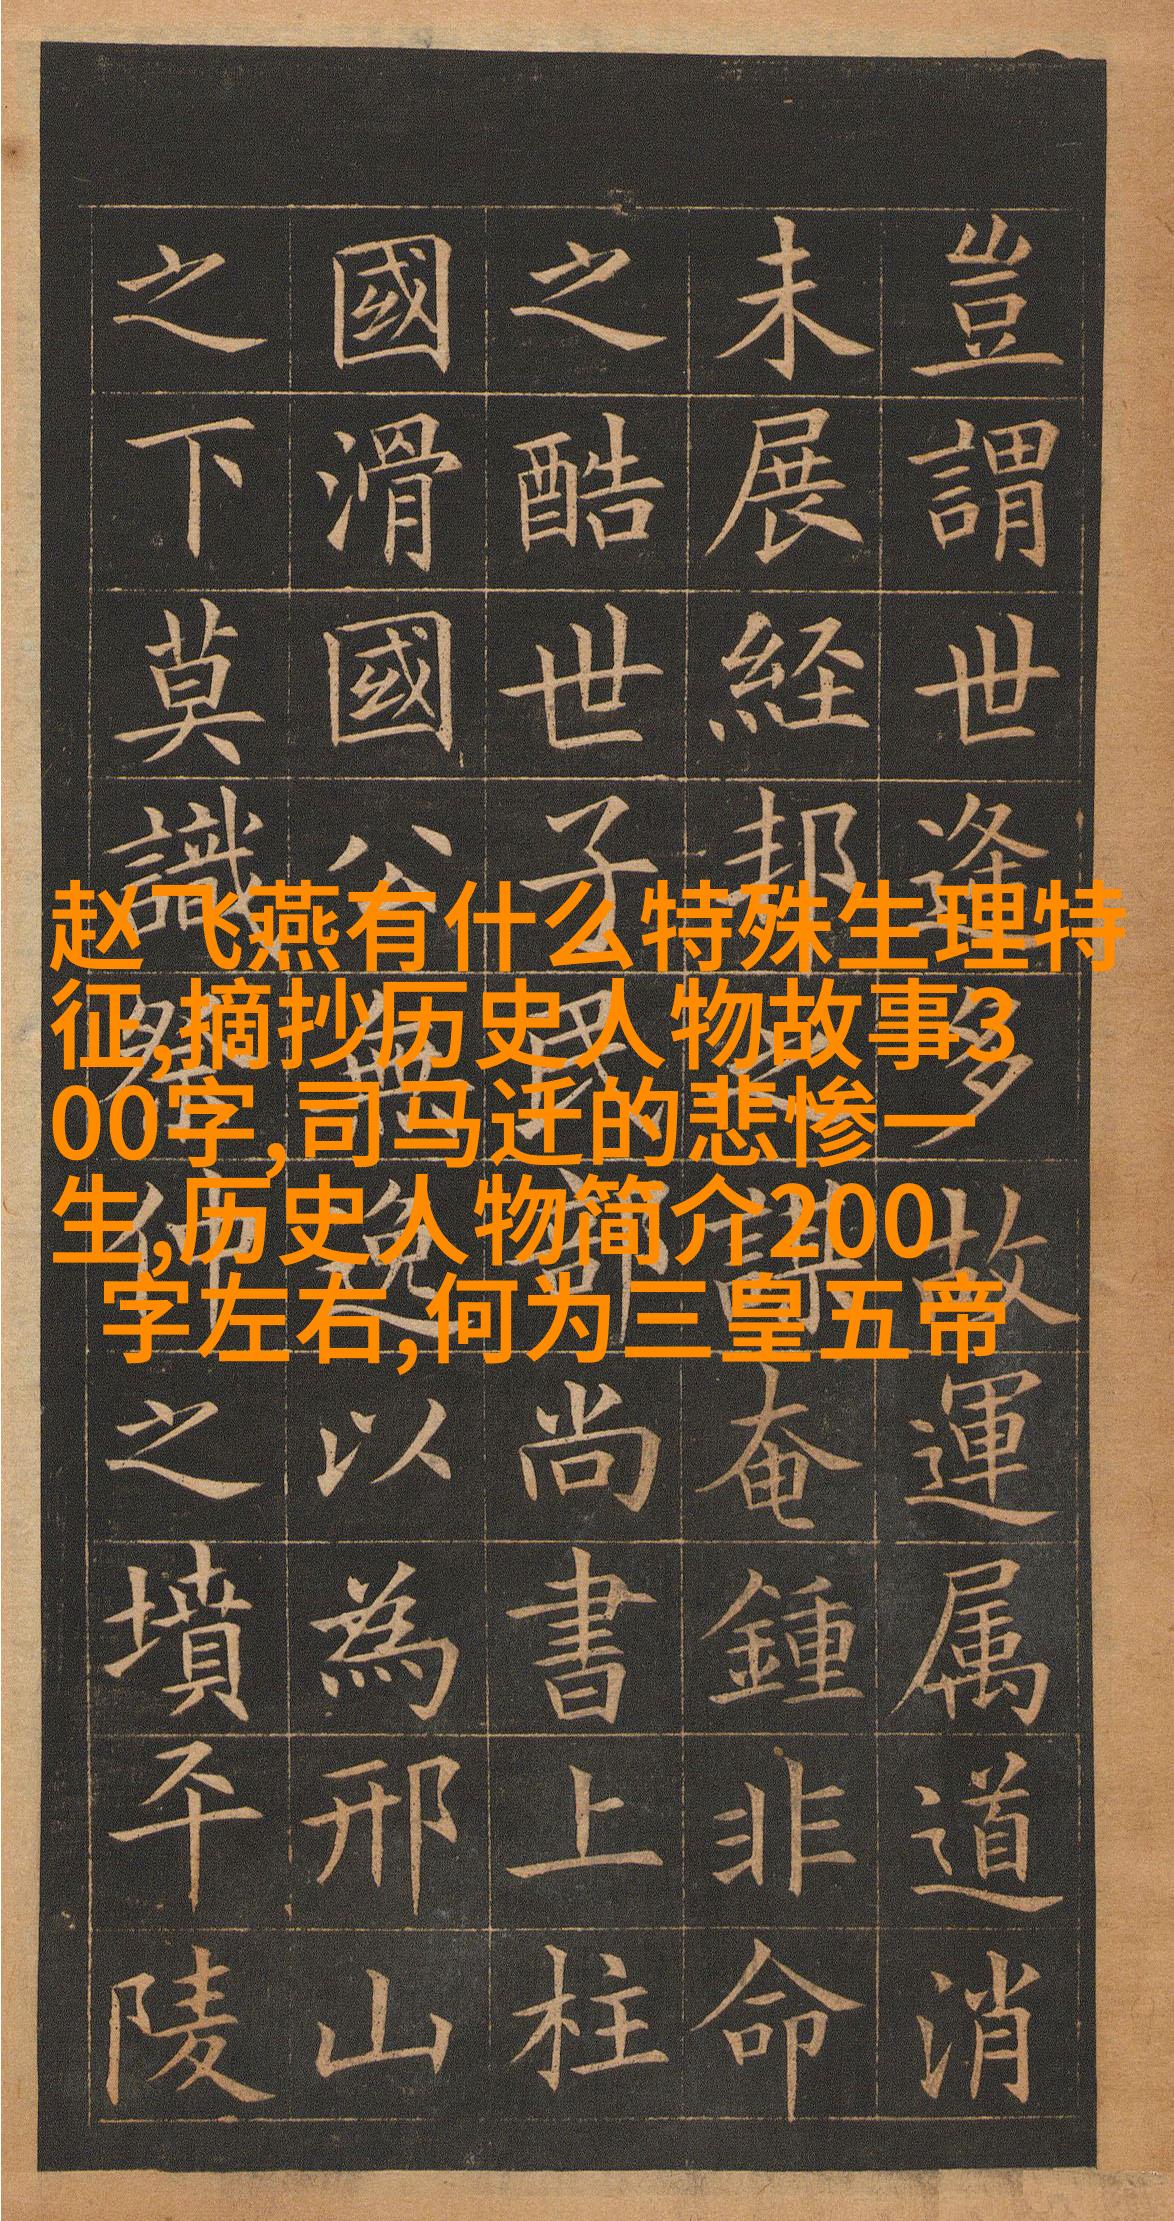 豈謂世逢多故運属道消
未展経邦之謀奄鍾非命
之酷世子民部尚書上柱
國滑國公無逸以為邢山
之下莫識祭仲之墳平陵
赵飞燕有什么特殊生理特
征,摘抄历史人物故事3
00字,司马迁的悲惨一
生,历史人物简介200
字左右,何为三皇五帝